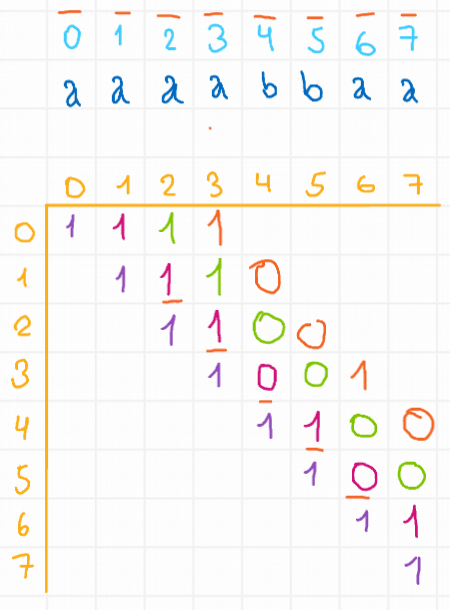 0 1 2 3 4 5 6 7
a a a a b b a a
0 1 2 3 4 5 6 7
0 1 1 1 1
1 1 1 1 0
2 1 1 0 0
3 1 0 0 1
4 1 1 0 0
5 1 0 0
6 1 1
7 1